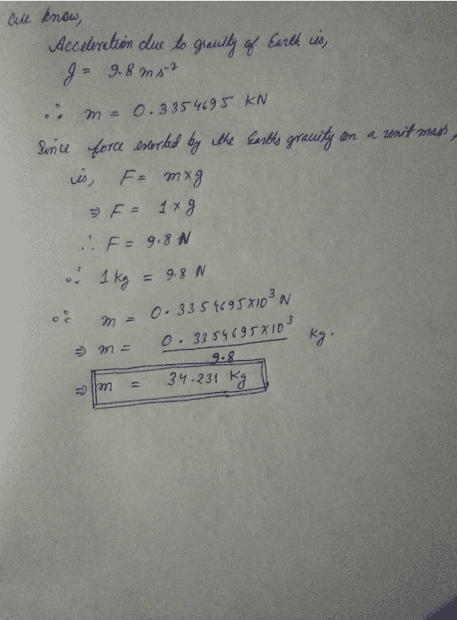 We know,
Acceleration due to gravity of Earth is,
g = 9.8 ms⁻²
∴ m = 0.3354695 KN
Since force exerted by the Earths gravity on a unit mass,
is, F = m×g
⇒ F = 1×g
∴ F = 9.8 N
∴ 1 Kg = 9.8 N
∴ m = 0.3354695×10³ N
⇒ m = 0.3354695×10³ / 9.8 Kg.
⇒ m = 34.231 Kg